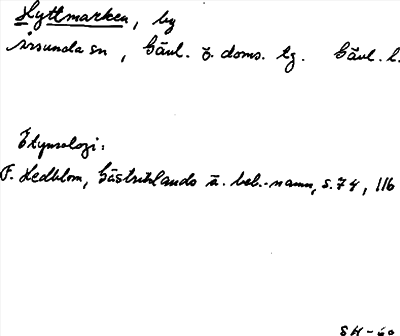 Hyttmarken, by
Årsunda sn, Gävl. ö. doms. lg. Gävl. l.
Etymologi:
F. Hedblom, Gästriklands ä. beb.-namn, s. 74, 116